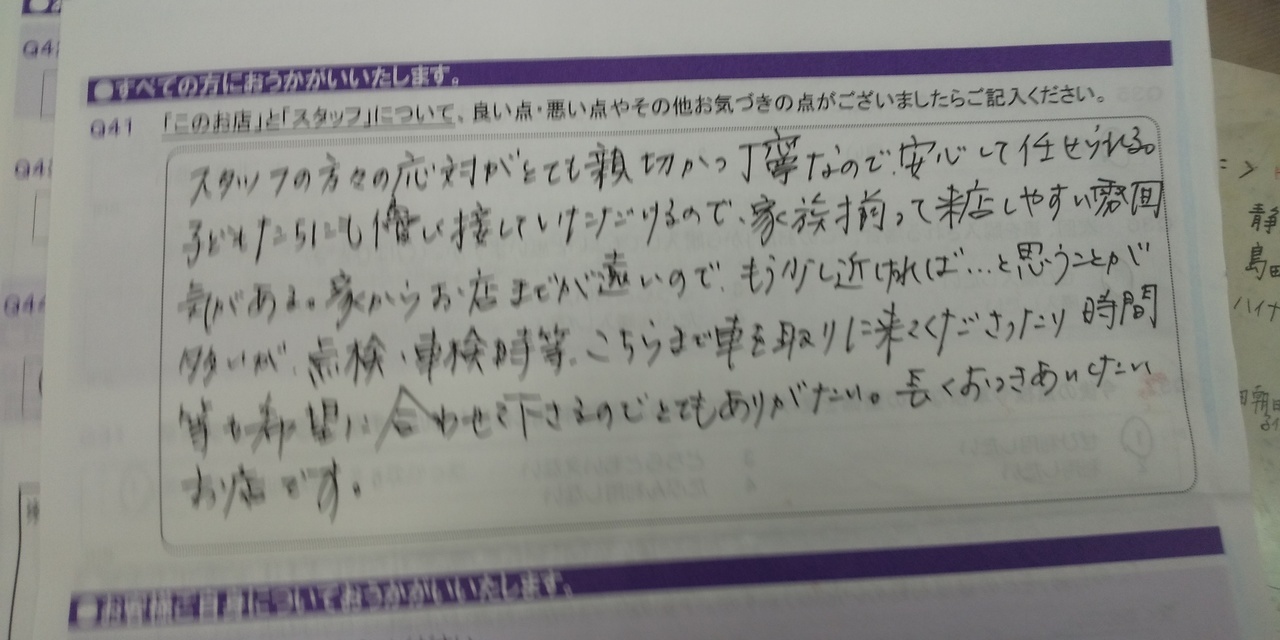 ●すべての方におうかがいいたします。
Q41 「このお店」と「スタッフ」について、良い点・悪い点やその他お気づきの点がございましたらご記入ください。
スタッフの方々の応対がとても親切かつ丁寧なので、安心して任せられる。
子どもたちにも優しく接していただけるので、家族揃って来店しやすい雰囲
気がある。家からお店までが遠いので、もう少し近ければ…と思うことが
多いが、点検、車検時等、こちらまで車を取りに来てくださったり時間
等も希望に合わせて下さるのでとてもありがたい。長くおつきあいしたい
お店です。
●お客様ご自身についておうかがいいたします。
静
島田
ハイナ